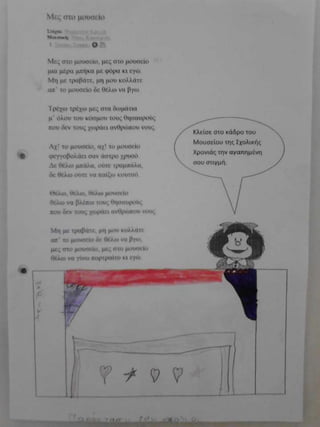 Μες στο μουσείο
Στίχοι:
Μουσική:
1.
Μες στο μουσείο, μες στο μουσείο
μια μέρα μπήκα με φόρα κι εγώ
Μη με τραβάτε, μη μου κολλάτε
απ' το μουσείο δε θέλω να βγω.
Τρέχω τρέχω μες στα δωμάτια
μ' όλου του κόσμου τους θησαυρούς
που δεν τους χωράει ανθρώπου νους
Αχ! το μουσείο, αχ! το μουσείο
φεγγοβολάει σαν άστρο χρυσό.
Δε θέλω μπάλα, ούτε τραμπάλα,
δε θέλω ούτε να παίξω κουτσό.
Θέλω, θέλω, θέλω μουσείο
θέλω να βλέπω τους θησαυρούς
που δεν τους χωράει ανθρώπου νους
Μη με τραβάτε, μη μου κολλάτε
απ' το μουσείο δε θέλω να βγω,
μες στο μουσείο, μες στο μουσείο
θέλω να γίνω πορτραίτο κι εγώ.
Κλείσε στο κάδρο του
Μουσείου της Σχολικής
Χρονιάς την αγαπημένη
σου στιγμή.